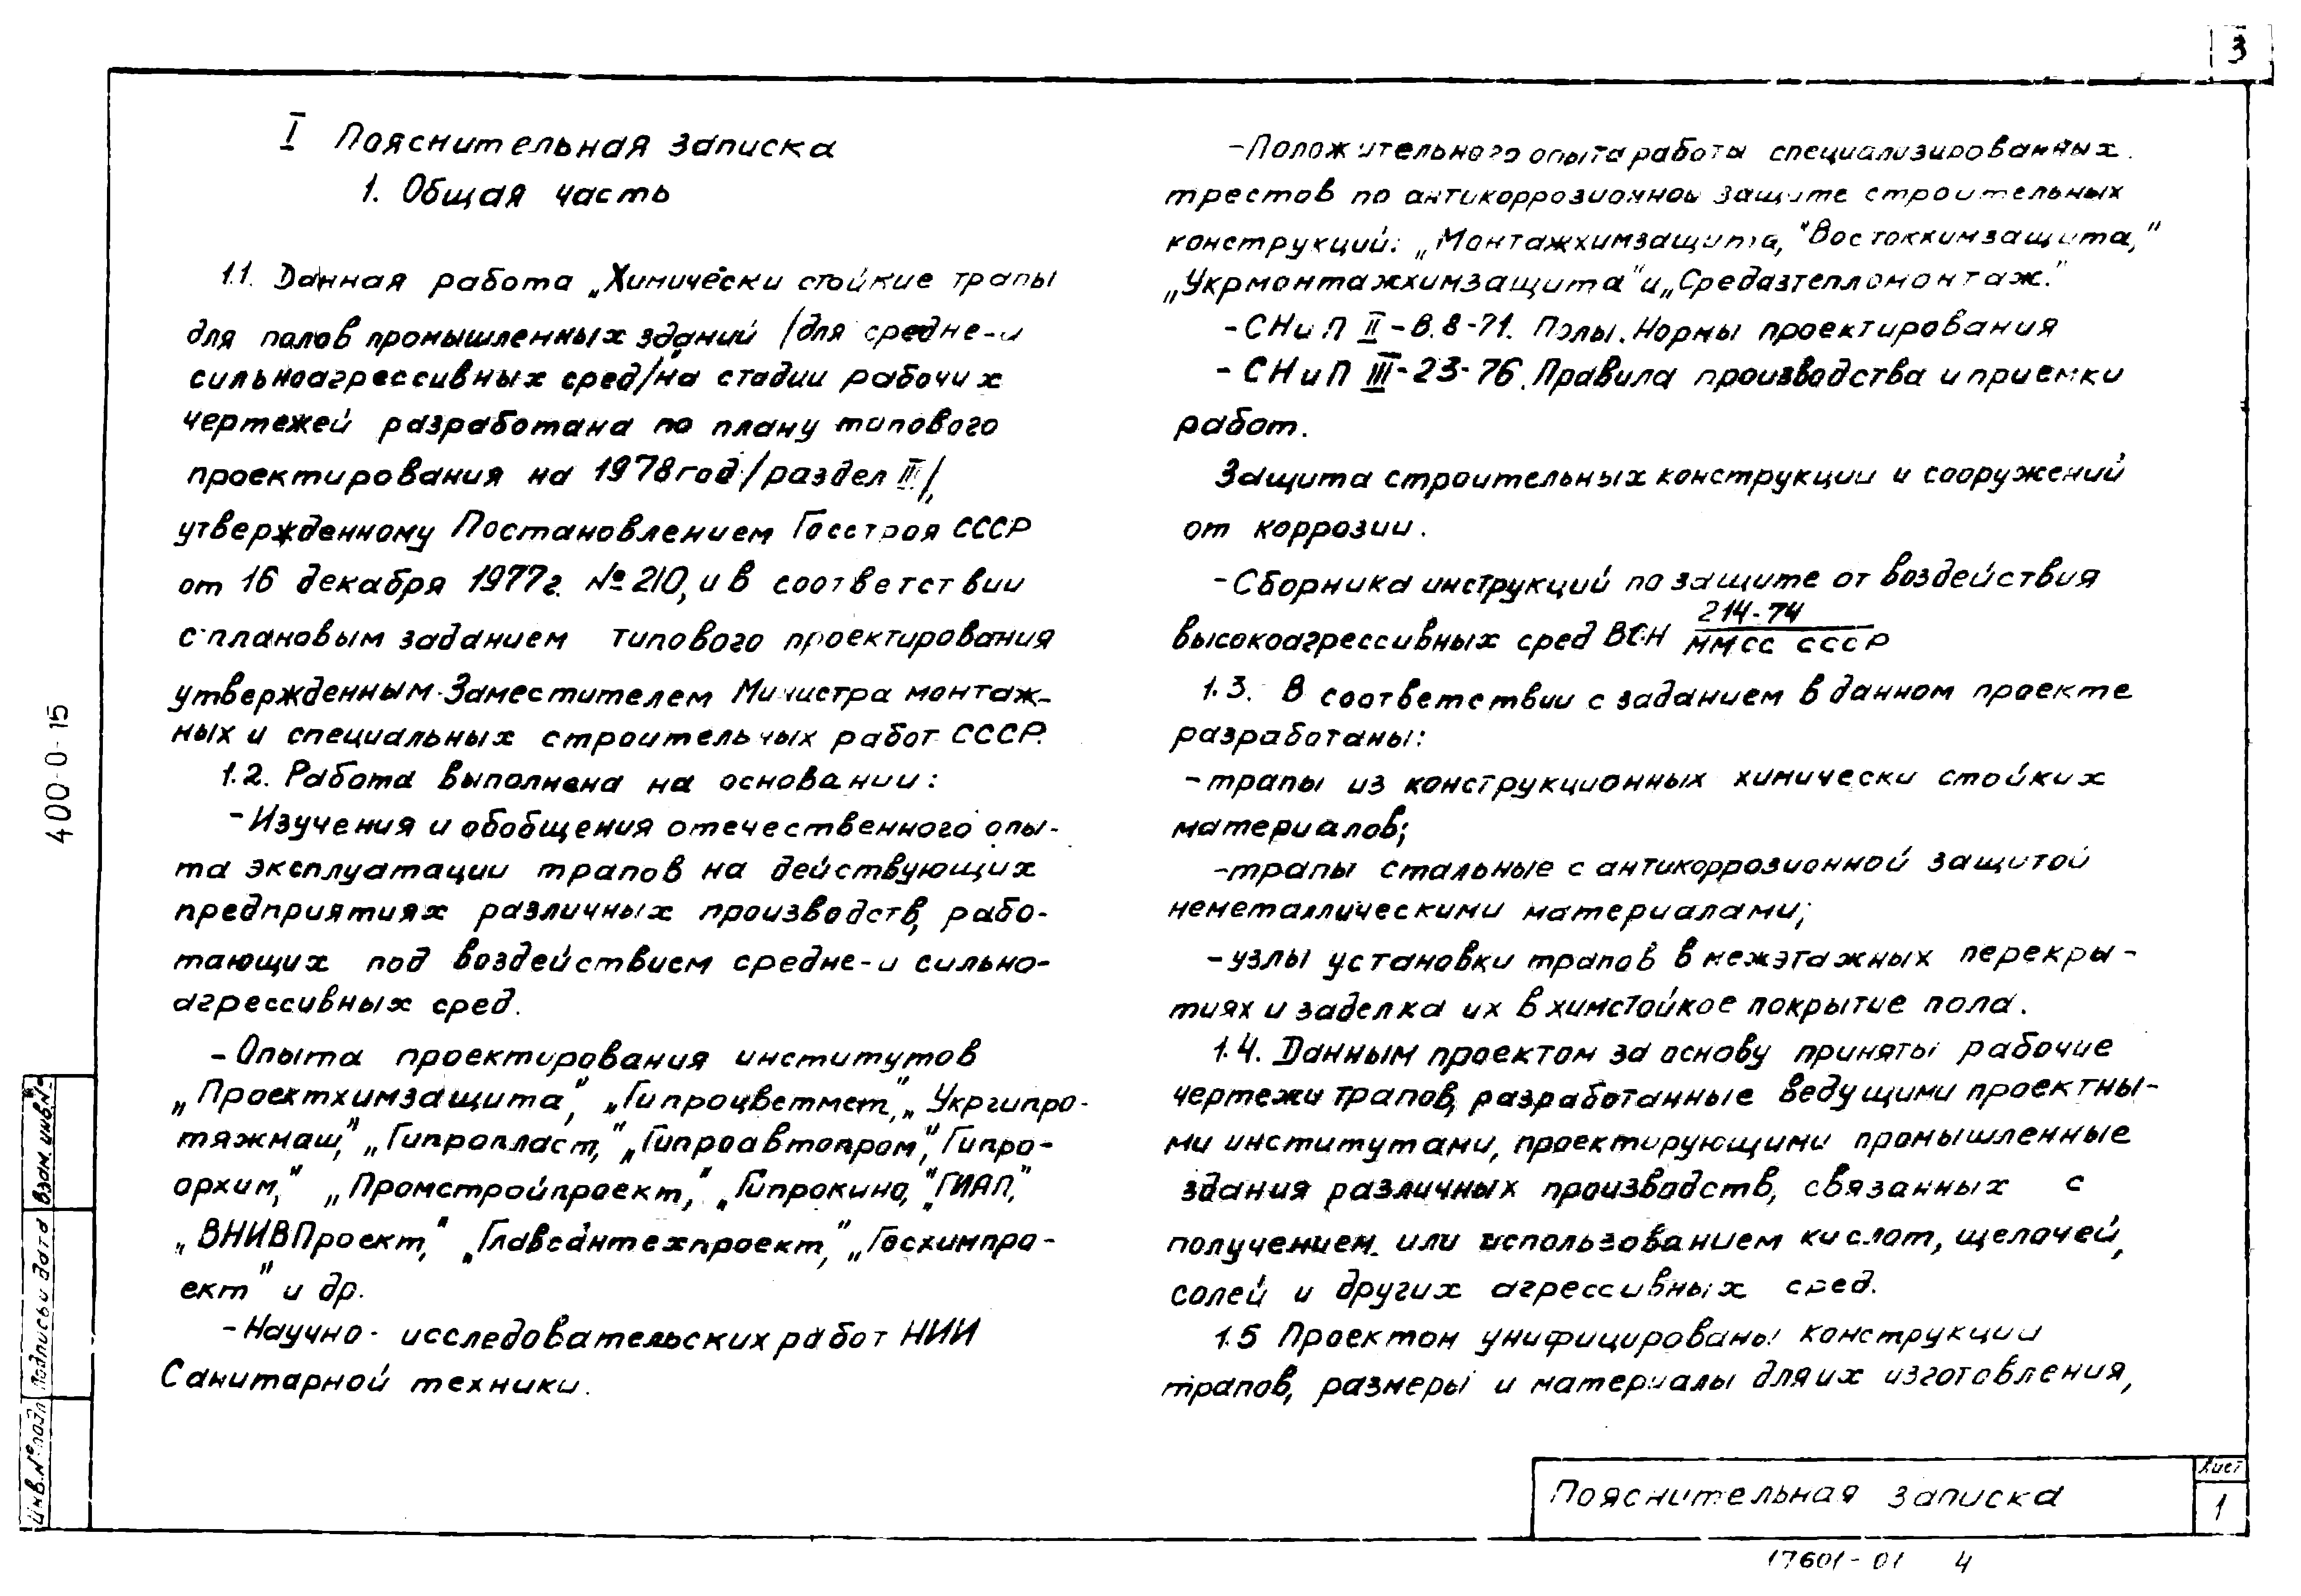 3
I Пояснительная записка
1. Общая часть
1.1. Данная работа „Химически стойкие трапы
для полов промышленных зданий /для средне-и
сильноагрессивных сред/на стадии рабочих
чертежей разработана по плану типового
проектирования на 1978год/раздел III/,
утвержденному Постановлением Госстроя СССР
от 16 декабря 1977г. №210, и в соответствии
с плановым заданием типового проектирования
утвержденным Заместителем Министра монтаж-
ных и специальных строительных работ СССР.
1.2. Работа выполнена на основании:
-Изучения и обобщения отечественного опы-
та эксплуатации трапов на действующих
предприятиях различных производств, рабо-
тающих под воздействием средне-и сильно-
агрессивных сред.
-Опыта проектирования институтов
„Проектхимзащита", „Гипроцветмет", „Укргипро-
тяжмаш," „Гипропласт," „Гипроавтопром", Гипро-
орхим," „Промстройпроект," „Гипрокино," „ГИАП,"
„ВНИВПроект," „Главсантехпроект," „Госхимпро-
ект" и др.
-Научно-исследовательских работ НИИ
Санитарной техники.
-Положительного опыта работы специализированных
трестов по антикоррозионной защите строительных
конструкций: „Монтажхимзащита, "Востокхимзащита,"
„Укрмонтажхимзащита" и „Средазтепломонтаж."
-СНиП II-В.8-71. Полы. Нормы проектирования
-СНиП III-23-76. Правила производства и приемки
работ.
Защита строительных конструкции и сооружений
от коррозии.
-Сборника инструкций по защите от воздействия
214-74
высокоагрессивных сред ВСН ММСС СССР
1.3. В соответствии с заданием в данном проекте
разработаны:
-трапы из конструкционных химически стойких
материалов;
-трапы стальные с антикоррозионной защитой
неметаллическими материалами;
-узлы установки трапов в межэтажных перекры-
тиях и заделка их в химстойкое покрытие пола.
1.4. Данным проектом за основу приняты рабочие
чертежи трапов, разработанные ведущими проектны-
ми институтами, проектирующими промышленные
здания различных производств, связанных с
получением или использованием кислот, щелочей,
солей и других агрессивных сред.
1.5 Проектом унифицированы конструкции
трапов, размеры и материалы для их изготовления,
400-0-15
Взам. инв.№
Подпись и дата
Инв.№подл
Пояснительная записка
Лист
1
17601-01 4